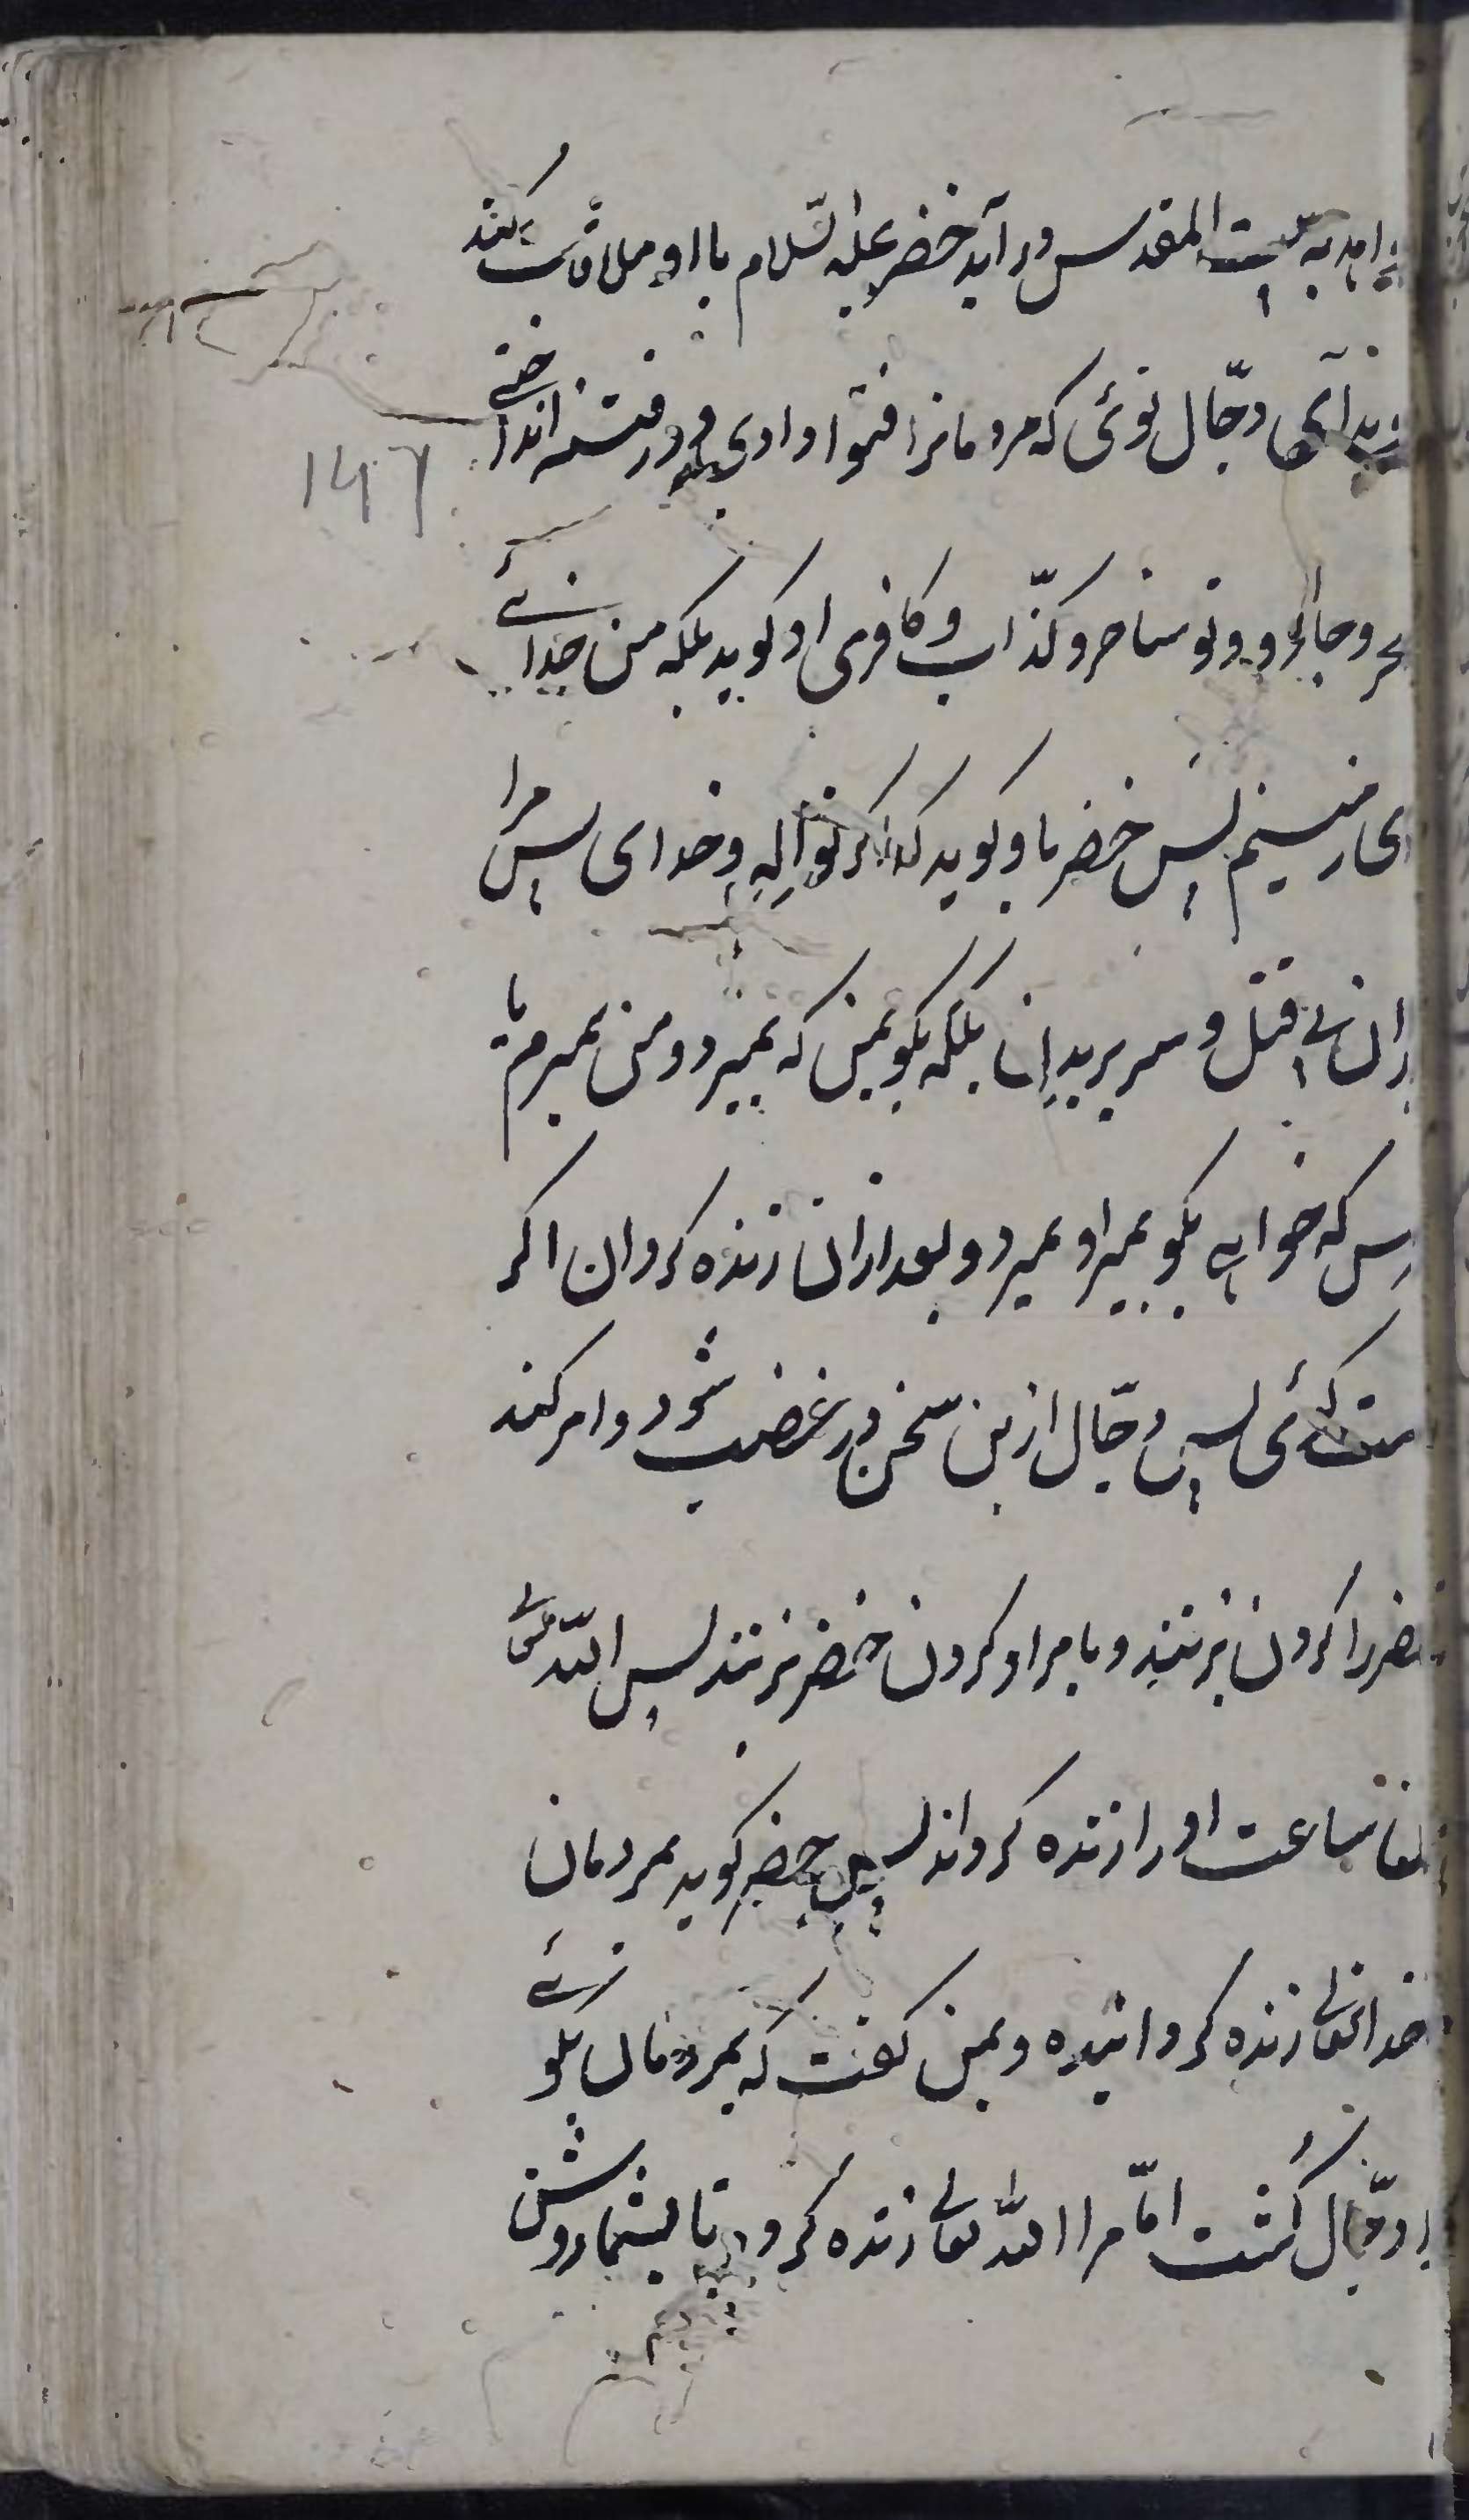 خواهد به بیت المقدس در آید خضر علیه السّلام با او ملاقات کند
آی دجّال توئی که مردمانرا فتوا دادی و در فتنه انداختی
و جادو و تو ساحر و کذّاب و کافری او گوید بلکه من خدائے
پس خضر باو گوید که اگر تو اله و خدای پس مرا
قتل و سر بریدان بلکه بگو بمن که بمیر و من بمیرم یا
که خواهی بگو بمیر او بمیرد و بعد ازان زنده گردان اگر
پس دجّال ازین سخن در غضب شود و امر کند
خضر را گردن بزنند و بامر او گردن خضر بزنند پس اللّه تعالی
ساعت او را زنده گرداند پس خضر گوید بمردمان
خدا تعالی زنده گردانیده و بمن گفت که بمردمان بگو
دجّال کُشت امّا مرا اللّه تعالی زنده کرد تا بشما روشن
۱۴۶